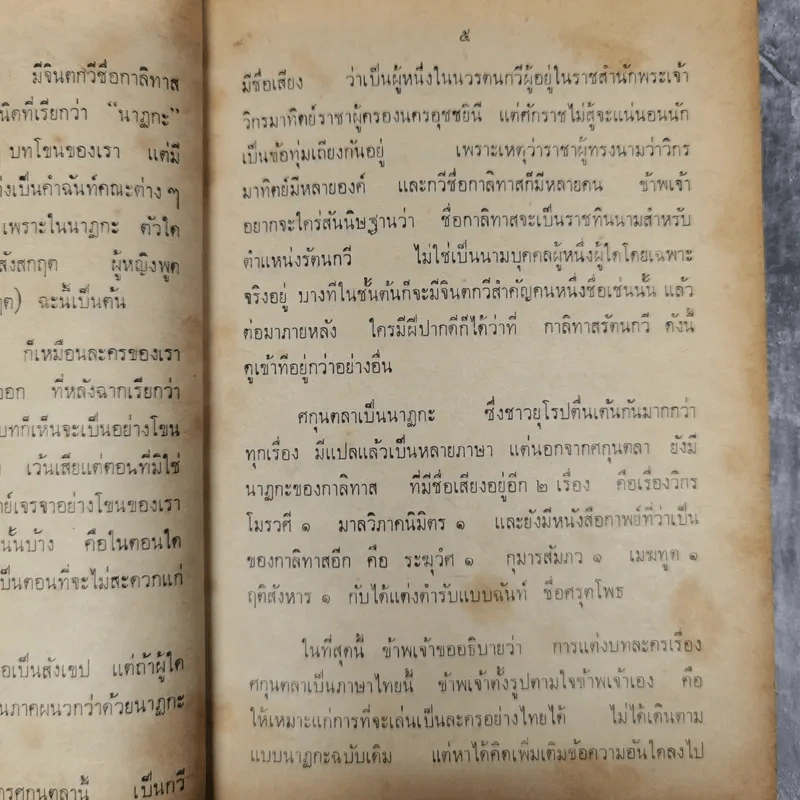 มีจินตกวีชื่อกาลิทาส
นิดที่เรียกว่า “นาฏกะ”
บทโขนของเรา แต่มี
เป็นคำฉันท์คณะต่าง ๆ
เพราะในนาฏกะ ตัวใด
สังสกฤต ผู้หญิงพูด
ฉะนี้เป็นต้น
ก็เหมือนละครของเรา
ออก ที่หลังฉากเรียกว่า
บทก็เห็นจะเป็นอย่างโขน
เว้นเสียแต่ตอนที่มิใช่
เจรจาอย่างโขนของเรา
นั้นบ้าง คือในตอนใด
เป็นตอนที่จะไม่สะดวกแก่
เป็นสังเขป แต่ถ้าผู้ใด
ภาคผนวกว่าด้วยนาฏกะ
ศกุนตลานี้ เป็นกวี
๕
มีชื่อเสียง ว่าเป็นผู้หนึ่งในนวรตนกวีผู้อยู่ในราชสำนักพระเจ้า
วิกรมาทิตย์ราชาผู้ครองนครอุชชยินี แต่ศักราชไม่สู้จะแน่นอนนัก
เป็นข้อทุ่มเถียงกันอยู่ เพราะเหตุว่าราชาผู้ทรงนามว่าวิกร
มาทิตย์มีหลายองค์ และกวีชื่อกาลิทาสก็มีหลายคน ข้าพเจ้า
อยากจะใคร่สันนิษฐานว่า ชื่อกาลิทาสจะเป็นราชทินนามสำหรับ
ตำแหน่งรัตนกวี ไม่ใช่เป็นนามบุคคลผู้หนึ่งผู้ใดโดยเฉพาะ
จริงอยู่ บางทีในชั้นต้นก็จะมีจินตกวีสำคัญคนหนึ่งชื่อเช่นนั้น แล้ว
ต่อมาภายหลัง ใครมีฝีปากดีก็ได้ว่าที่ กาลิทาสรัตนกวี ดังนี้
ดูเข้าทีอยู่กว่าอย่างอื่น
ศกุนตลาเป็นนาฏกะ ซึ่งชาวยุโรปตื่นเต้นกันมากกว่า
ทุกเรื่อง มีแปลแล้วเป็นหลายภาษา แต่นอกจากศกุนตลา ยังมี
นาฏกะของกาลิทาส ที่มีชื่อเสียงอยู่อีก ๒ เรื่อง คือเรื่องวิกร
โมรวศี ๑ มาลวิภาคนิมิตร ๑ และยังมีหนังสือกาพย์ที่ว่าเป็น
ของกาลิทาสอีก คือ ระฆุวํศ ๑ กุมารสัมภว ๑ เมฆทูต ๑
ฤติสังหาร ๑ กับได้แต่งตำรับแบบฉันท์ ชื่อศรุตโพธ
ในที่สุดนี้ ข้าพเจ้าขออธิบายว่า การแต่งบทละครเรื่อง
ศกุนตลาเป็นภาษาไทยนี้ ข้าพเจ้าตั้งรูปตามใจข้าพเจ้าเอง คือ
ให้เหมาะแก่การที่จะเล่นเป็นละครอย่างไทยได้ ไม่ได้เดินตาม
แบบนาฏกะฉบับเดิม แต่หาได้คิดเพิ่มเติมข้อความอันใดลงไป